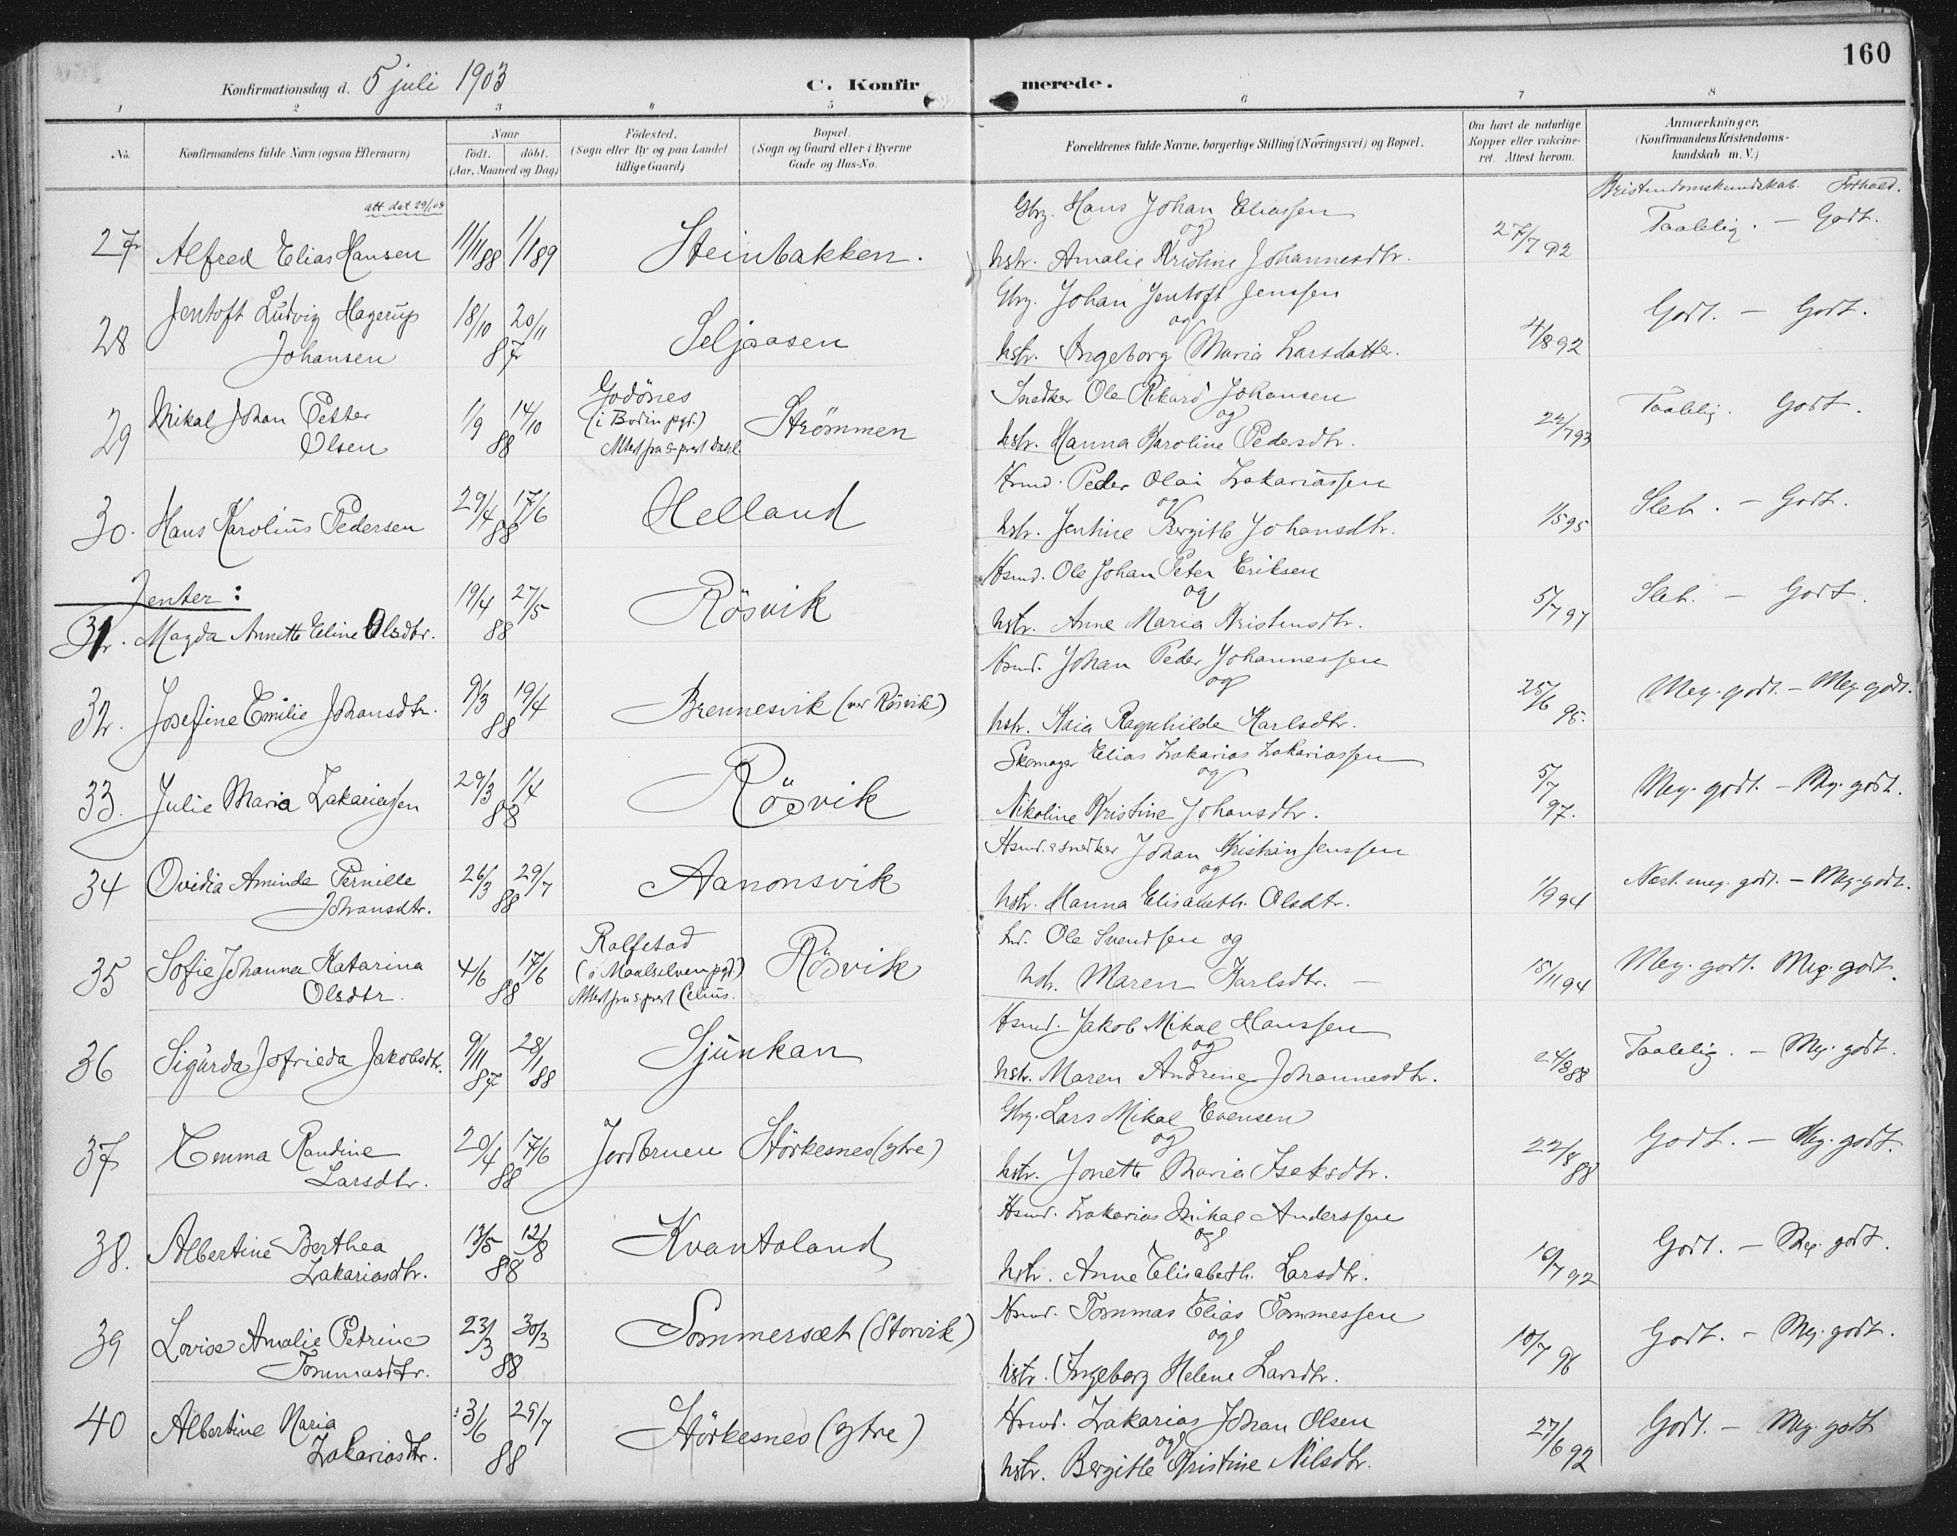 160
Konfirmationsdag d. 5 juli 1903
C. Konfir merede.
1 2 3 4 5 6 7 8
No.
Konfirmandens fulde Navn (ogsaa Efternavn)
Naar
Födt. döbt.
(Aar, Maaned og Dag)
Födested.
(Sogn eller By og paa Landet
tillige Gaard)
Bopæl.
(Sogn og Gaard eller i Byerne
Gade og Hus-No.
Forældrenes fulde Navne, borgerlige Stilling (Næringsvei) og Bopæl.
Om havt de naturlige
Kopper eller vakcine-
ret. Attest herom.
Anmærkninger.
(Konfirmandens Kristendoms-
kundskab m. V.)
Kristendomskundskab. Forhold.
att dat 29/1 08
27 Alfred Elias Hansen 11/11 88 1/1 89 Steinbakken.
Gbrg. Hans Johan Eliassen
og
hstr. Amalie Kristine Johannesdtr. 27/7 92 Taalelig. – Godt.
28 Jentoft Ludvig Hagerup
Johansen 18/10 20/11 87 Seljaasen
Gbrg. Johan Jentoft Jenssen
og
hstr. Ingeborg Maria Larsdatter. 4/8 92 Godt. – Godt.
29 Mikal Johan Petter
Olsen 1/9 14/10 88
Godönes
(i Bodin pgd.)
Attest fra s-prest Dahl
Strömmen
Snedker Ole Rikard Johansen
og
hstr. Hanna Karoline Pedersdtr. 22/7 93 Taalelig. Godt.
30. Hans Karolius Pedersen 29/4 17/6 88 Helland
Hsmd. Peder Olai Zakariassen
og
hstr. Jentine Bergitte Johansdtr. 1/5 95 Slet. – Godt.
Jenter:
31. Magda Annette Eline Olsdtr. 19/4 27/5 88 Rösvik
Hsmd. Ole Johan Peter Eriksen
og
hstr. Anne Maria Kristensdtr. 5/7 97 Slet. – Godt.
32. Josefine Emilie Johansdtr. 9/3 19/4 88 Brennesvik (ver Rösvik)
Hsmd. Johan Peder Johannessen
og
hstr. Kaia Ragnhilde Karlsdtr. 25/6 95. Meg. godt. – Meg. godt.
33. Julie Maria Zakariassen 29/3 1/4 88 Rösvik
Skomager Elias Zakarias Zakariassen
og
Nikoline Kristine Johansdtr. 5/7 97. Meg. godt. – Meg. godt.
34 Ovidia Aminda Pernille
Johansdtr. 26/3 29/7 88 Aanonsvik
Hsmd. & snedker Johan Kristian Jenssen
og
hstr. Hanna Elisabeth Olsdtr. 1/9 94 Nest. meg. godt. – Meg. godt.
35 Sofie Johanna Katarina
Olsdtr. 4/6 17/6 88
Rolfstad
(i Maalselven pgd)
Attest fra s-prest Celius.
Rösvik
Ole Svendsen og
Maren Karlsdtr. – 15/11 94 Meg. godt. Meg. godt.
36 Sigurda Jofrieda Jakobsdtr. 9/11 87 28/1 88 Sjunkan
Hsmd. Jakob Mikal Hanssen
og
hstr. Maren Andrine Johannesdtr. 24/8 88 Taalelig. – Meg. godt.
37 Emma Randine
Larsdtr. 20/4 17/6 88 Jordbruen Störkesnes (ytre)
Gbrg. Lars Mikal Evensen
og
hstr. Jonette Maria Isaksdtr. 22/8 88 Godt. – Meg. godt.
38. Albertine Berthea
Zakariasdtr. 13/5 12/8 88 Kvantoland
Hsmd. Zakarias Mikal Anderssen
og
hstr. Anne Elisabeth Larsdtr. 10/7 92 Godt. – Meg. godt.
39 Lovise Amalie Petrine
Tommasdtr. 23/3 30/3 88 Sommersæt (Storvik)
Hsmd. Tommas Elias Tommessen
og
hstr. Ingeborg Helene Larsdtr. 10/7 96 Godt. – Meg. godt.
40 Albertine Maria
Zakariasdtr. 3/6 29/7 88 Störkesnes (ytre)
Hsmd. Zakarias Johan Olsen
og
hstr. Bergitte Kristine Nilsdtr. 27/6 92 Godt. – Meg. godt